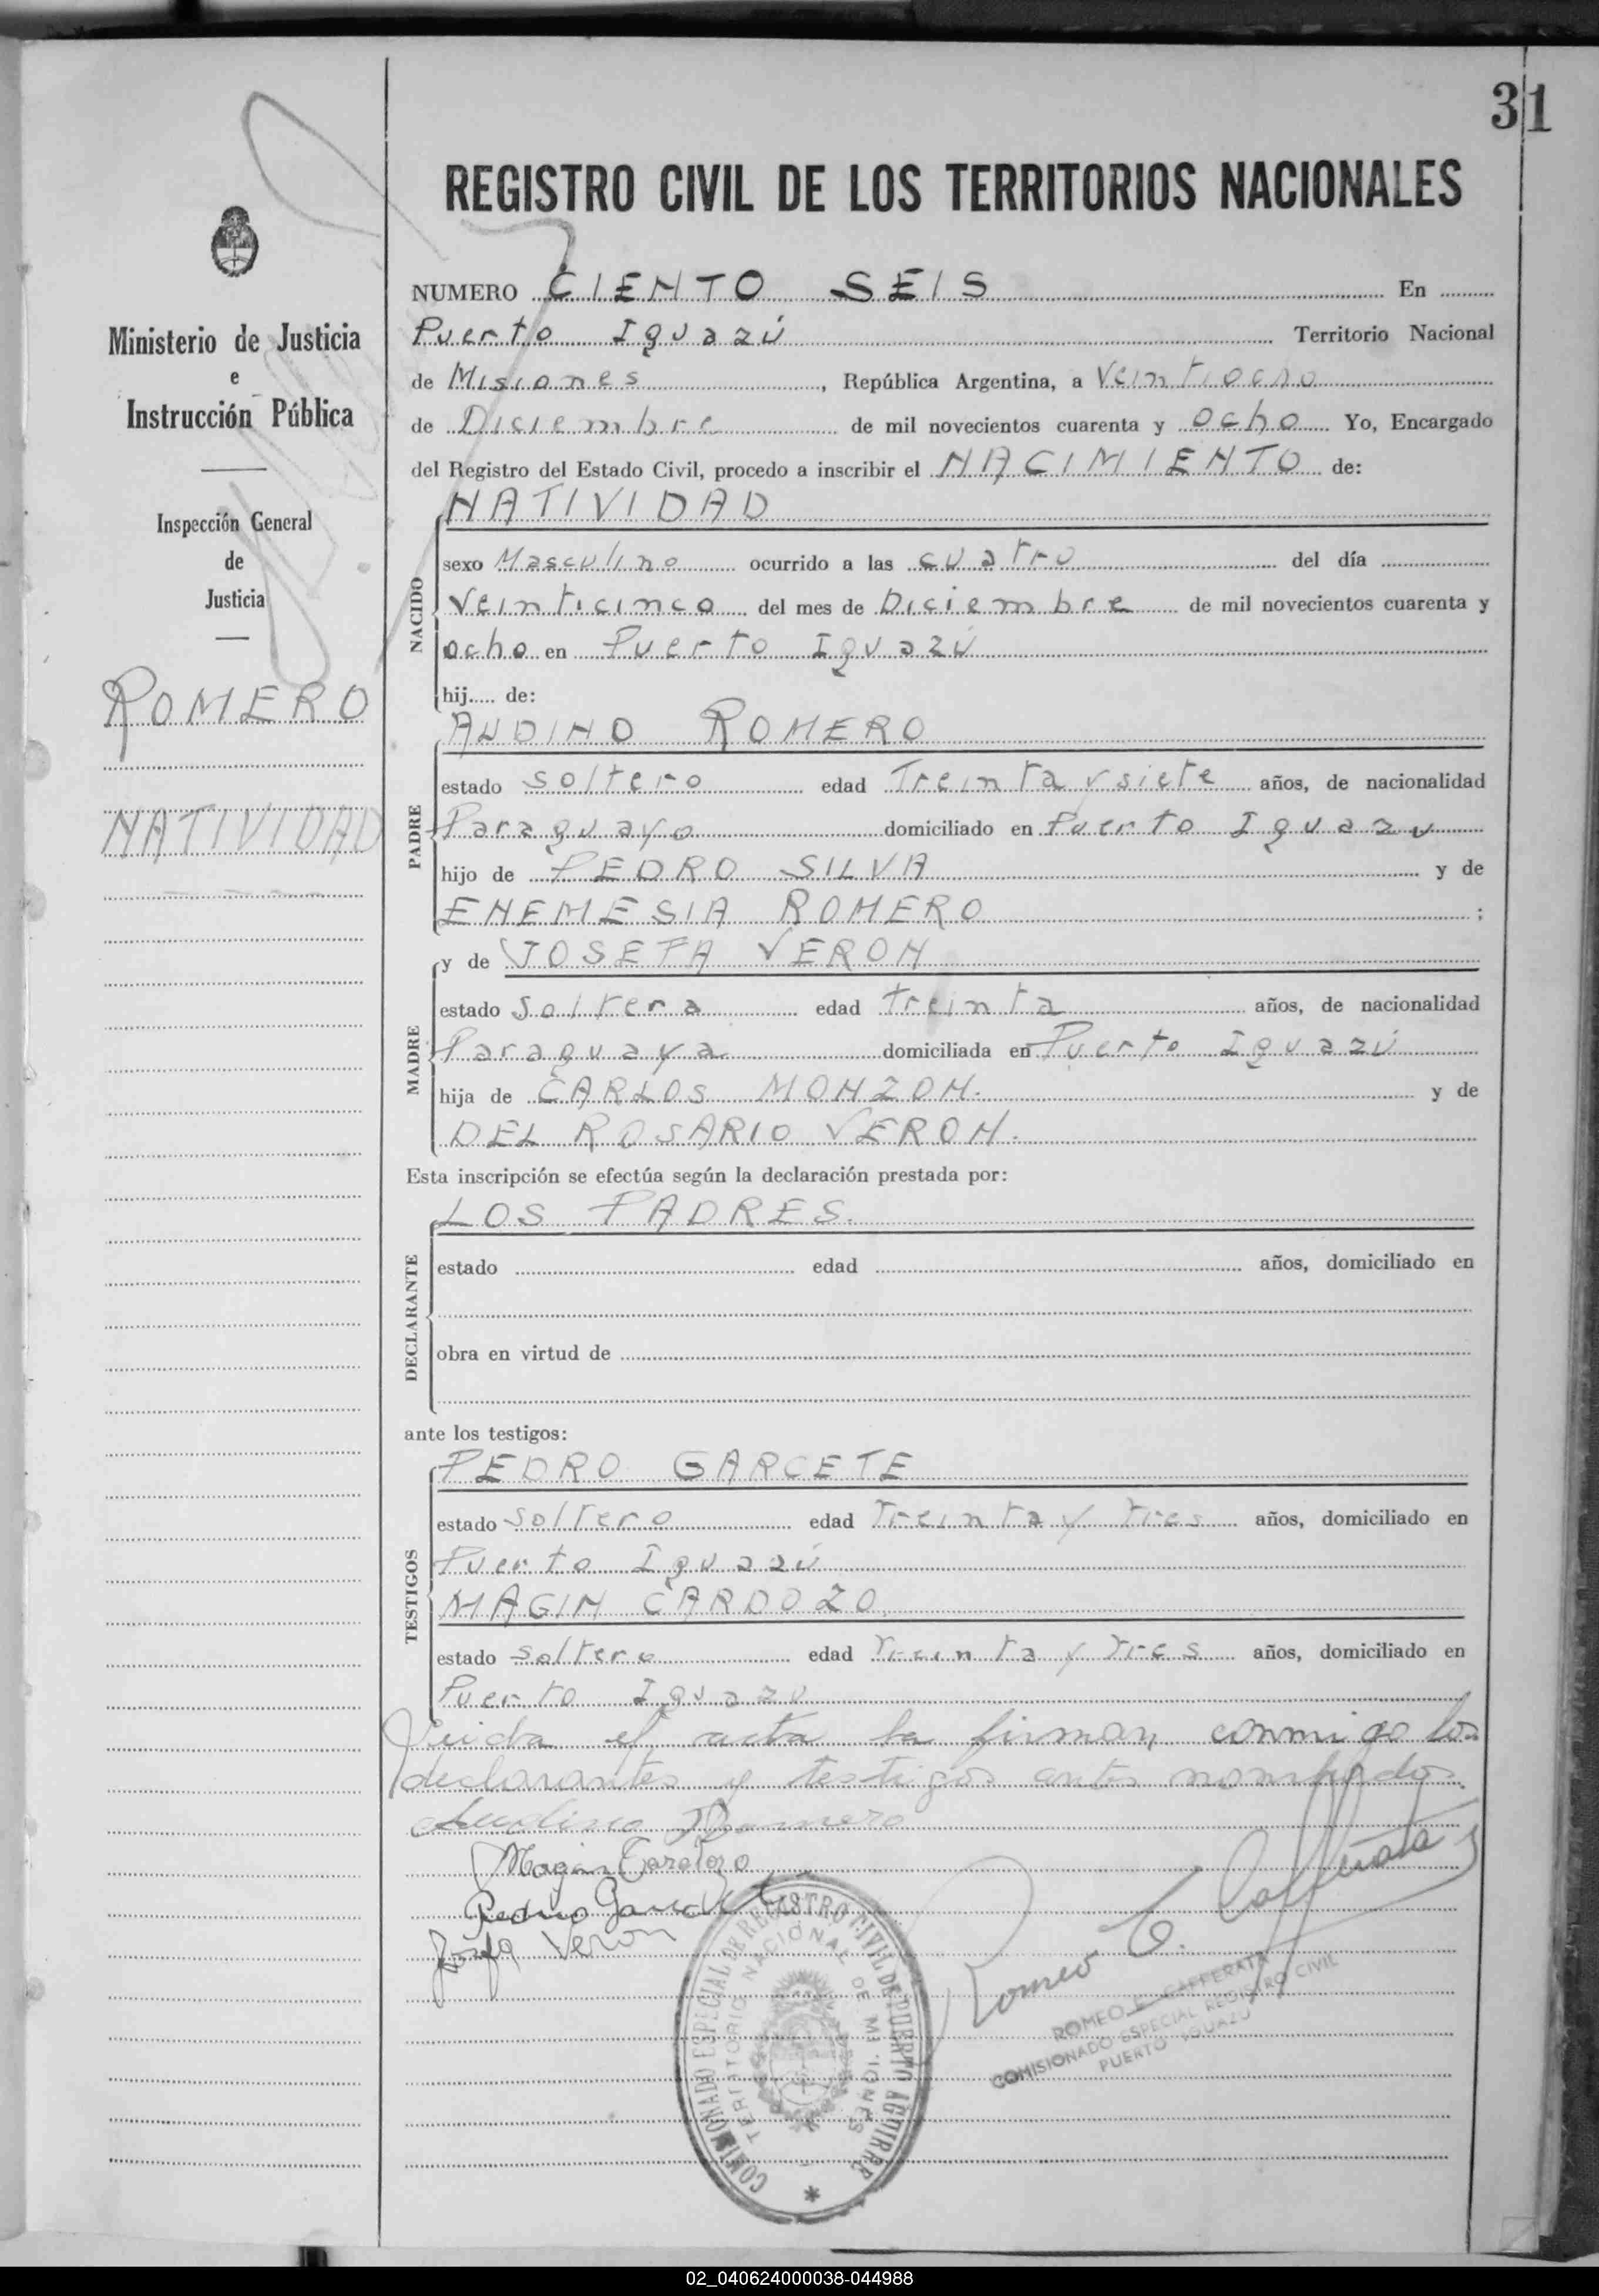 31
REGISTRO CIVIL DE LOS TERRITORIOS NACIONALES
Ministerio de Justicia
e
Instrucción Pública
Inspección General
de
Justicia
ROMERO
NATIVIDAD
NUMERO CIENTO SEIS En
Puerto Iguazú Territorio Nacional
de Misiones, República Argentina, a Veintiocho
de Diciembre de mil novecientos cuarenta y ocho Yo, Encargado
del Registro del Estado Civil, procedo a inscribir el NACIMIENTO de:
NACIDO
NATIVIDAD
sexo Masculino ocurrido a las cuatro del día
Veinticinco del mes de Diciembre de mil novecientos cuarenta y
ocho en Puerto Iguazú
hij..... de:
PADRE
AUDINO ROMERO
estado soltero edad Treinta y siete años, de nacionalidad
Paraguayo domiciliado en Puerto Iguazu
hijo de PEDRO SILVA y de
ENEMESIA ROMERO ;
MADRE
y de JOSEFA VERON
estado Soltera edad treinta años, de nacionalidad
Paraguaya domiciliada en Puerto Iguazú
hija de CARLOS MONZON. y de
DEL ROSARIO VERON.
Esta inscripción se efectúa según la declaración prestada por:
DECLARANTE
LOS PADRES.
estado edad años, domiciliado en
obra en virtud de
ante los testigos:
TESTIGOS
PEDRO GARCETE
estado soltero edad Treinta y tres años, domiciliado en
Puerto Iguazú
MAGIN CARDOZO
estado soltero edad Treinta y tres años, domiciliado en
Puerto Iguazu
Leida el acta la firman conmigo los
declarantes y testigos antes nombrados
Audino Romero
Magin Cardozo
Pedro Garcete
Josefa Veron
Romeo C. Cafferata
COMISIONADO ESPECIAL DE REGISTRO CIVIL DE PUERTO AGUIRRE
TERRITORIO NACIONAL DE MISIONES
ROMEO C. CAFFERATA
COMISIONADO ESPECIAL REGISTRO CIVIL
PUERTO IGUAZU
02_040624000038-044988